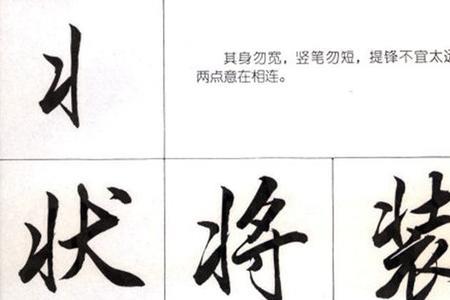 丬
其身勿宽，竖笔勿短，提锋不宜太远
两点意在相连。
状 将 装